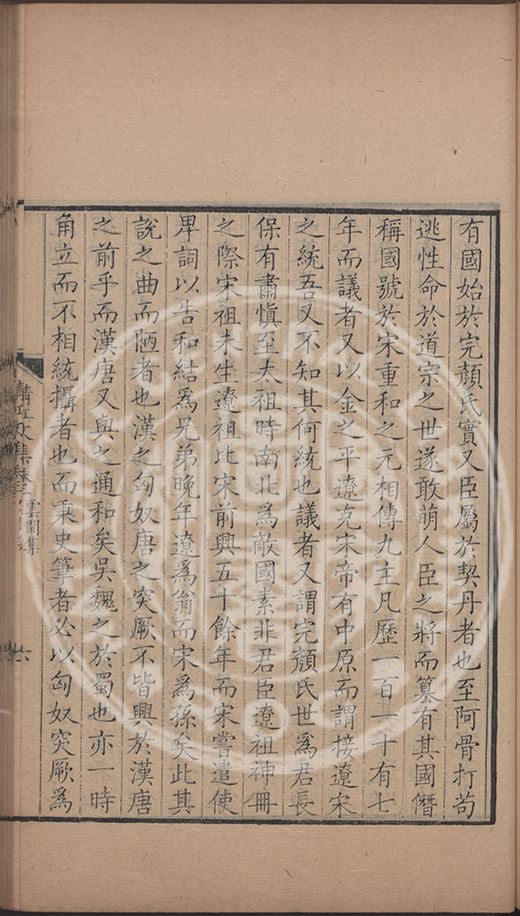 有國始於完顏氏實又臣屬於契丹者也至阿骨打苟
逃性命於道宗之世遂敢萌人臣之將而篡有其國僭
稱國號於宋重和之元相傳九主凡歷一百一十有七
年而議者又以金之平遼克宋帝有中原而謂接遼宋
之統吾又不知其何統也議者又謂完顏氏世爲君長
保有肅慎至太祖時南北爲敵國素非君臣遼祖神冊
之際宋祖未生遼祖比宋前興五十餘年而宋嘗遣使
卑詞以告和結爲兄弟晚年遼爲翁而宋爲孫矣此其
說之曲而陋者也漢之匈奴唐之突厥不皆興於漢唐
之前乎而漢唐又與之通和矣吳魏之於蜀也亦一時
角立而不相統攝者也而秉史筆者必以匈奴突厥爲
雲間集
六